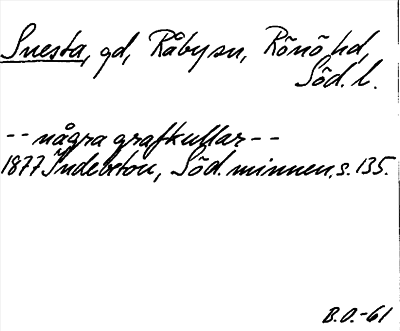 Snesta, gd, Råby sn, Rönö hd,
Söd. l.
-- några grafkullar --
1877 Indebetou, Söd. minnen, s. 135.
B.O.-61